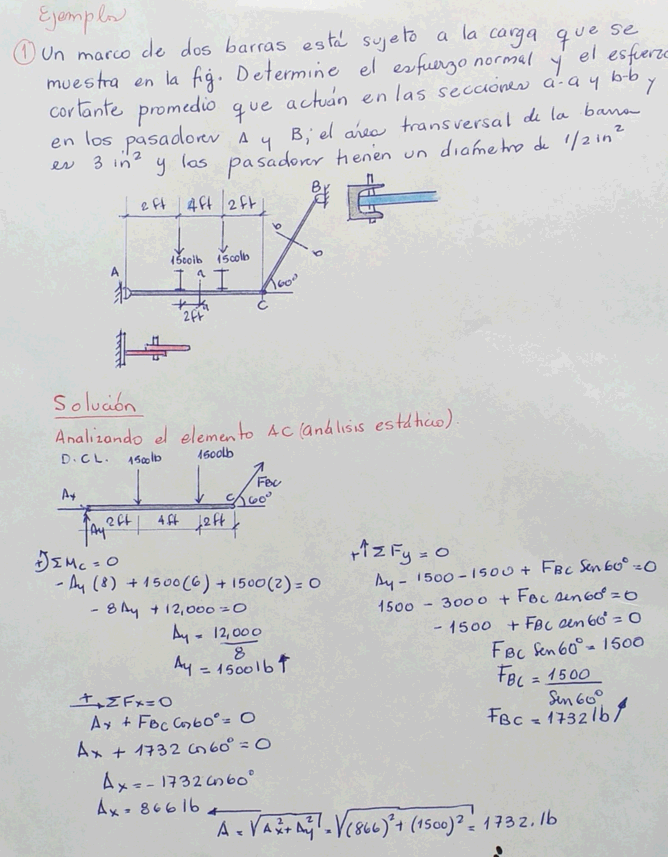 Ejemplos
① Un marco de dos barras está sujeto a la carga que se
muestra en la fig. Determine el esfuerzo normal y el esfuerzo
cortante promedio que actúan en las secciones a-a y b-b y
en los pasadores A y B; el área transversal de la barra
es 3 in² y los pasadores tienen un diámetro de 1/2 in²
2 ft 4 ft 2 ft
B
b b
1500lb 1500lb
A a 60°
a C
2ft
Solución
Analizando el elemento AC (análisis estático).
D.C.L. 1500lb 1500lb
FBC
Ax C 60°
Ay 2 ft 4 ft 2 ft
+) ΣMc = 0
- Ay (8) + 1500(6) + 1500(2) = 0
- 8Ay + 12,000 = 0
Ay = 12,000/8
Ay = 1500 lb ↑
+↑ ΣFy = 0
Ay - 1500 - 1500 + FBC Sen60° = 0
1500 - 3000 + FBC sen60° = 0
- 1500 + FBC sen60° = 0
FBC Sen60° = 1500
FBC = 1500/Sen60°
FBC = 1732 lb ↗
+→ ΣFx = 0
Ax + FBC Cos60° = 0
Ax + 1732 cos60° = 0
Ax = - 1732 cos60°
Ax = 866 lb ←
A = √Ax² + Ay² = √(866)² + (1500)² = 1732. lb